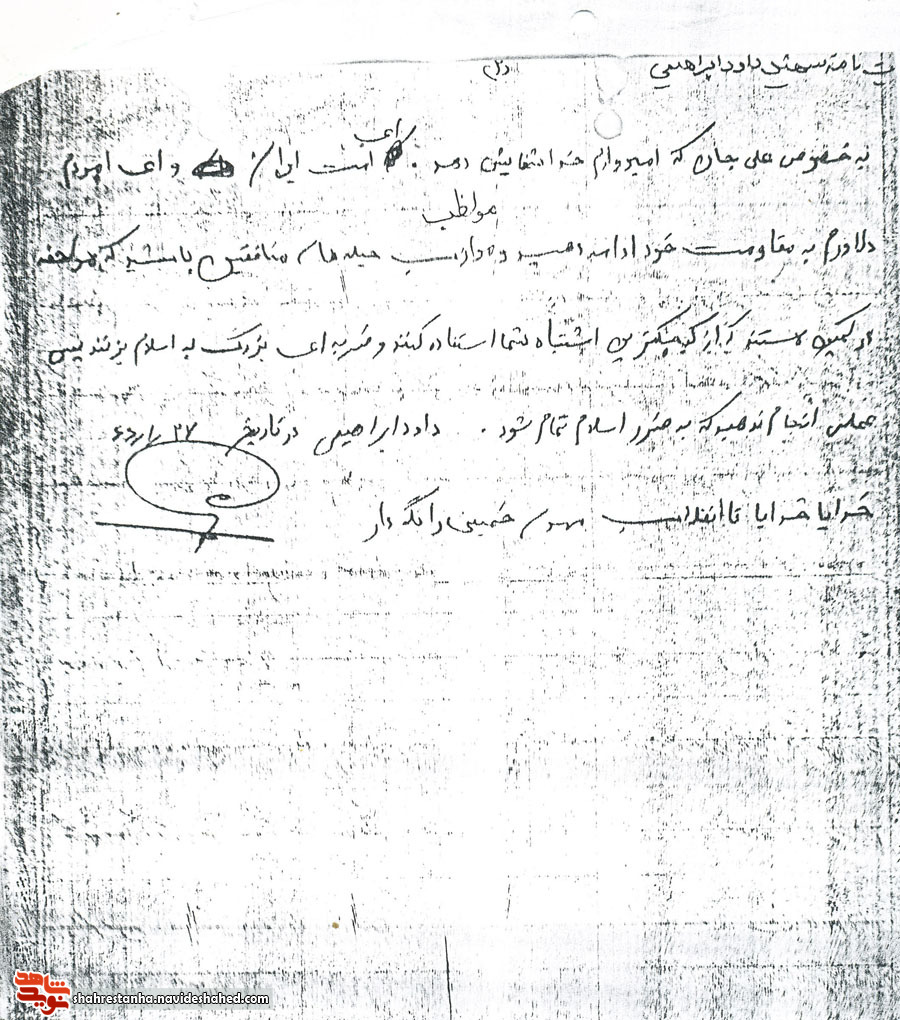 ت نامه شهید داود ابراهیمی دوم
به خصوص علی جان که امیدوارم خدا شفایش دهد. ای امت ایران و ای مردم
دلاورم به مقاومت خود ادامه دهید و مواظب حیله های منافقین باشید که هر لحظه
در کمین هستند که از کوچکترین اشتباه شما استفاده کنند و ضربه ای بزرگ به اسلام بزنند پس
عملی انجام ندهید که به ضرر اسلام تمام شود. داود ابراهیمی در تاریخ ۲۷
خدایا خدایا تا انقلاب مهدی خمینی را نگه دار
نوید شاهد
shahrestanha.navideshahed.com